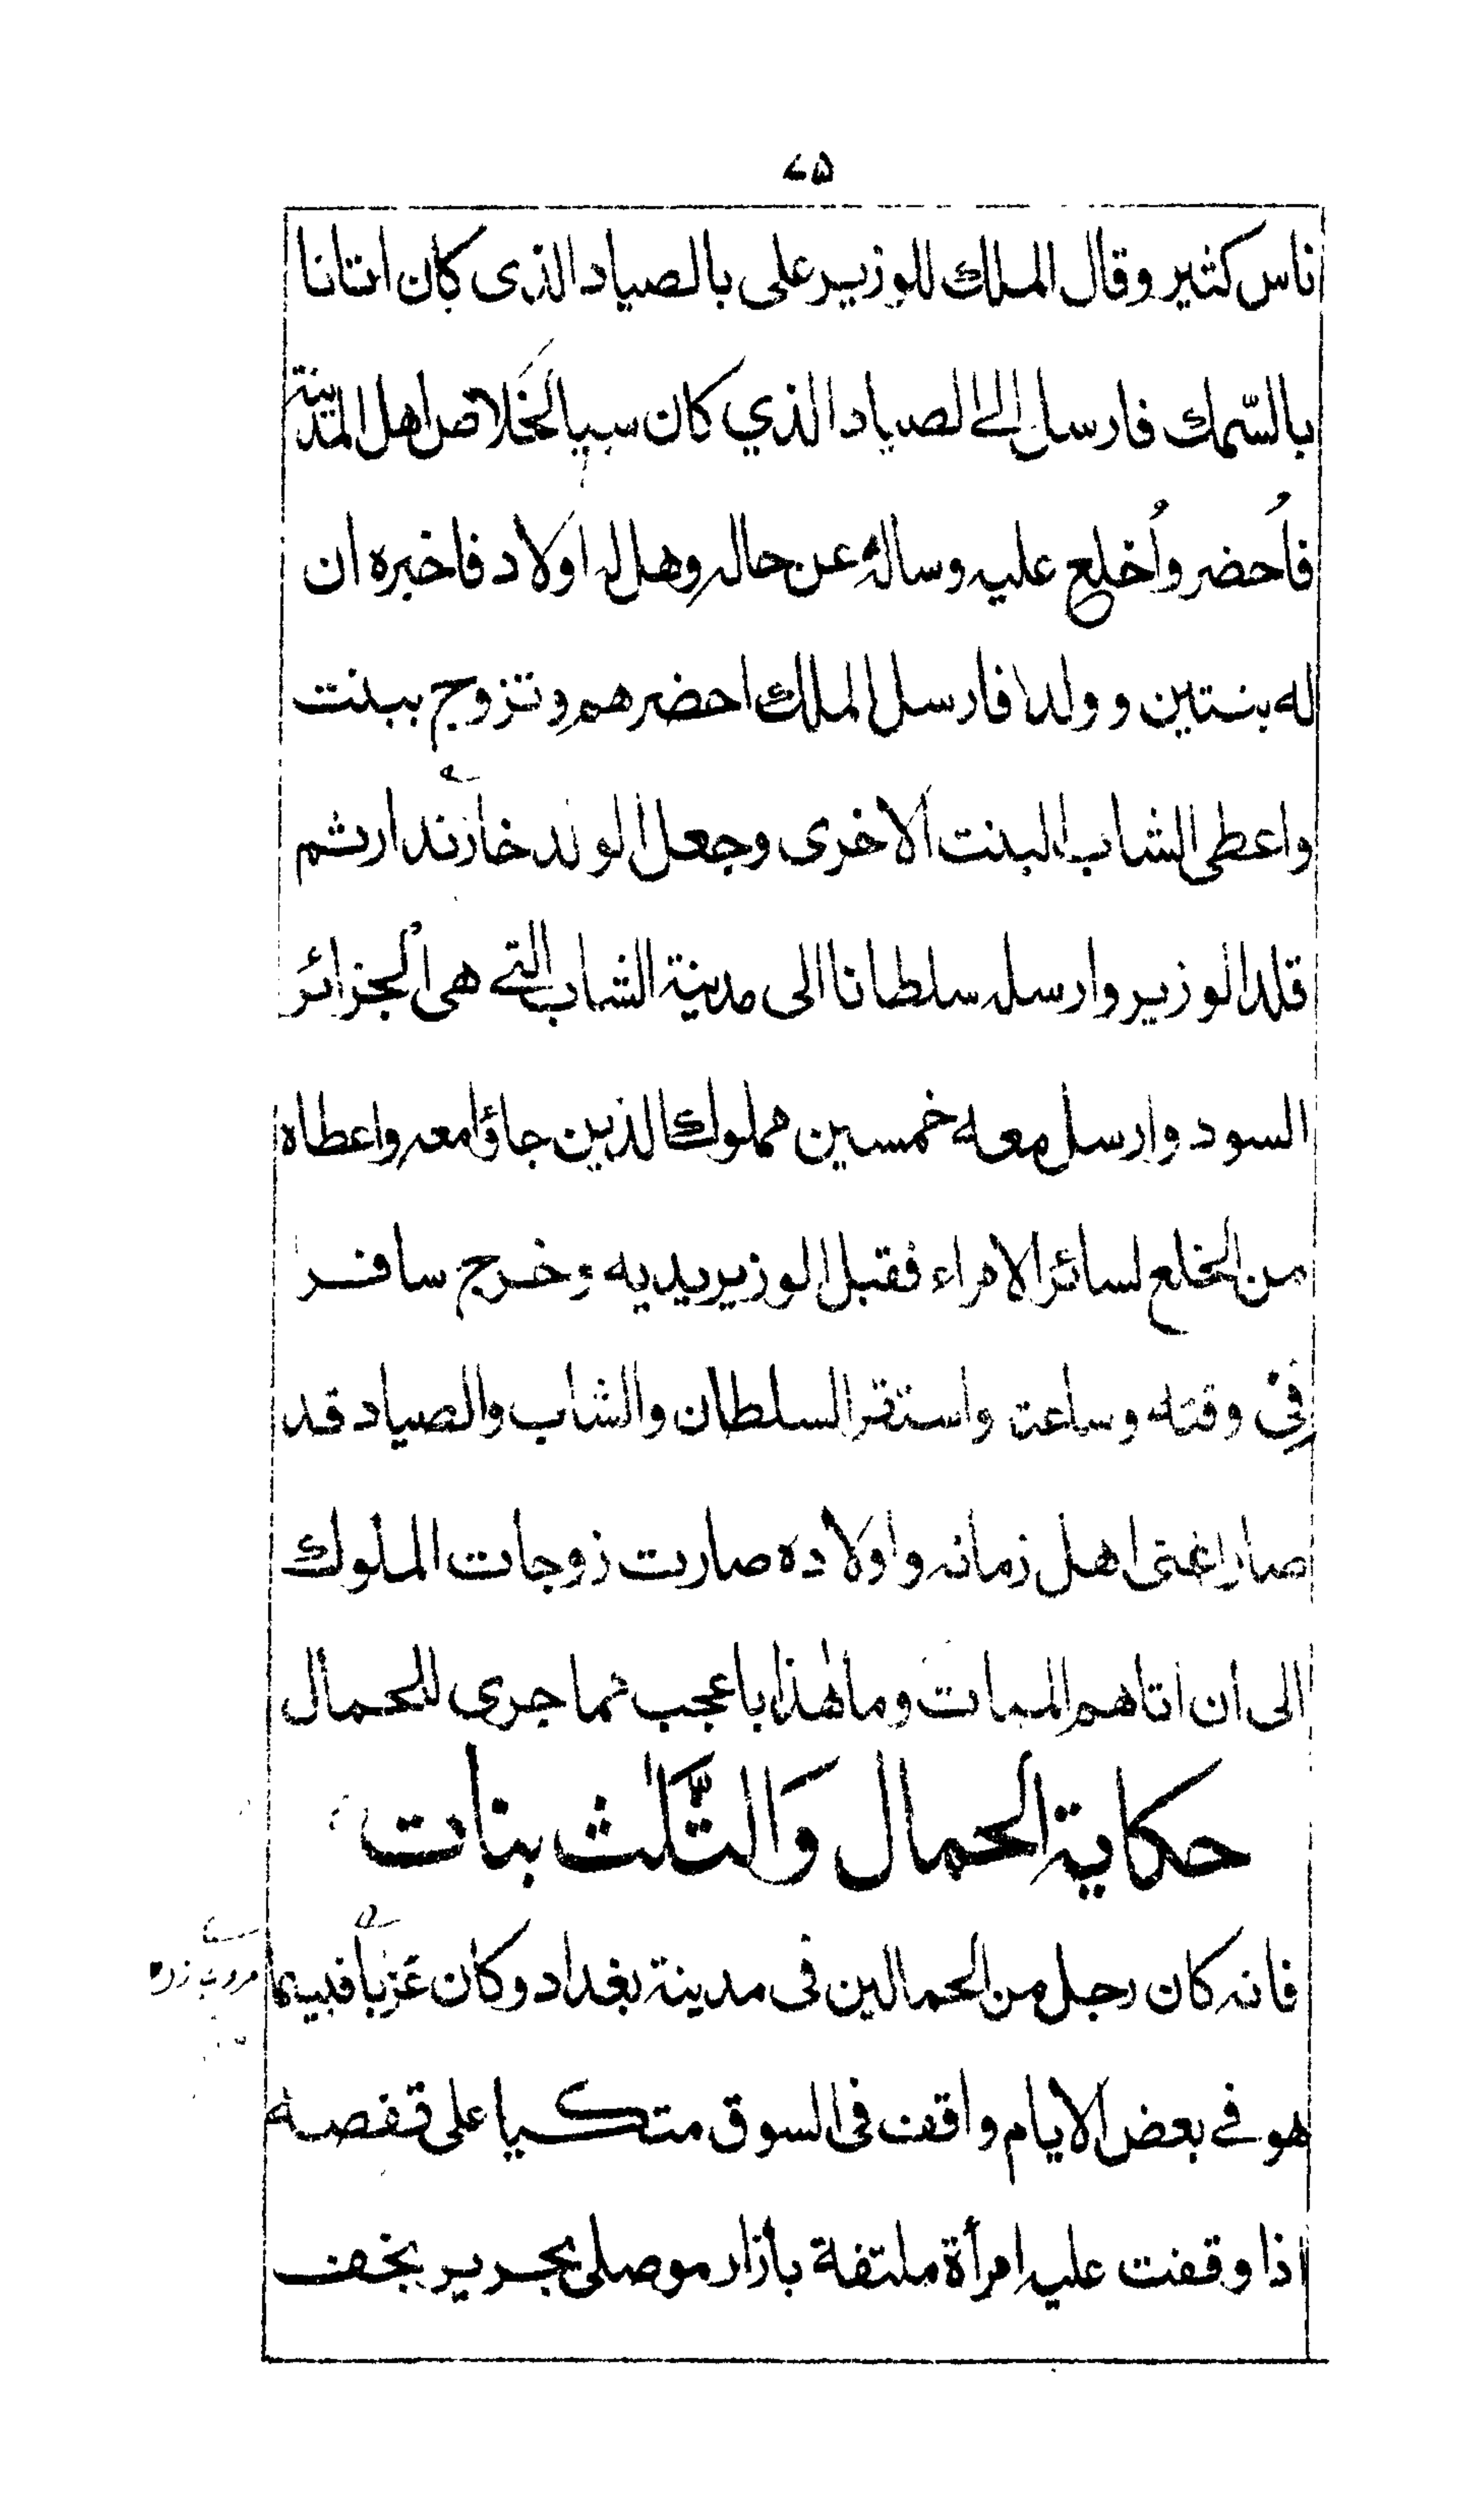 ٧٥
ناس كثير وقال الملك للوزير على بالصياد الذى كان اتانا
بالسّمك فارسل الى الصياد الذي كان سببا لخَلاص اهل المدينة
فاُحضر واُخلع عليه وسالهُ عن حاله وهل له اولاد فاخبره ان
له بنتين وولدا فارسل الملك احضرهم وتزوج ببنت
واعطى الشاب البنت الاخرى وجعل الولد خازندار ثم
قلد الوزير وارسله سلطانا الى مدينة الشاب التى هى الجزائر
السود وارسل معه خمسين مملوكا الذين جاؤا معه واعطاه
من الخلع لسائر الامراء فقبل الوزير يديه وخرج سافر
فِى وقته وساعته واستقر السلطان والشاب والصياد قد
صار اغنى اهل زمانه واولاده صارت زوجات الملوك
الى ان اتاهم الممات وما هذا باعجب مما جرى للحمال
حكاية الحمال وَالثَّلٰث بنات
فانه كان رجل من الحمالين فى مدينة بغداد وكان عَزَبًا فبينما
هو في بعض الايام واقف فى السوق متكيا على قفصه
اذا وقفت عليه امرأة ملتفة بازار موصلى بحرير بخف